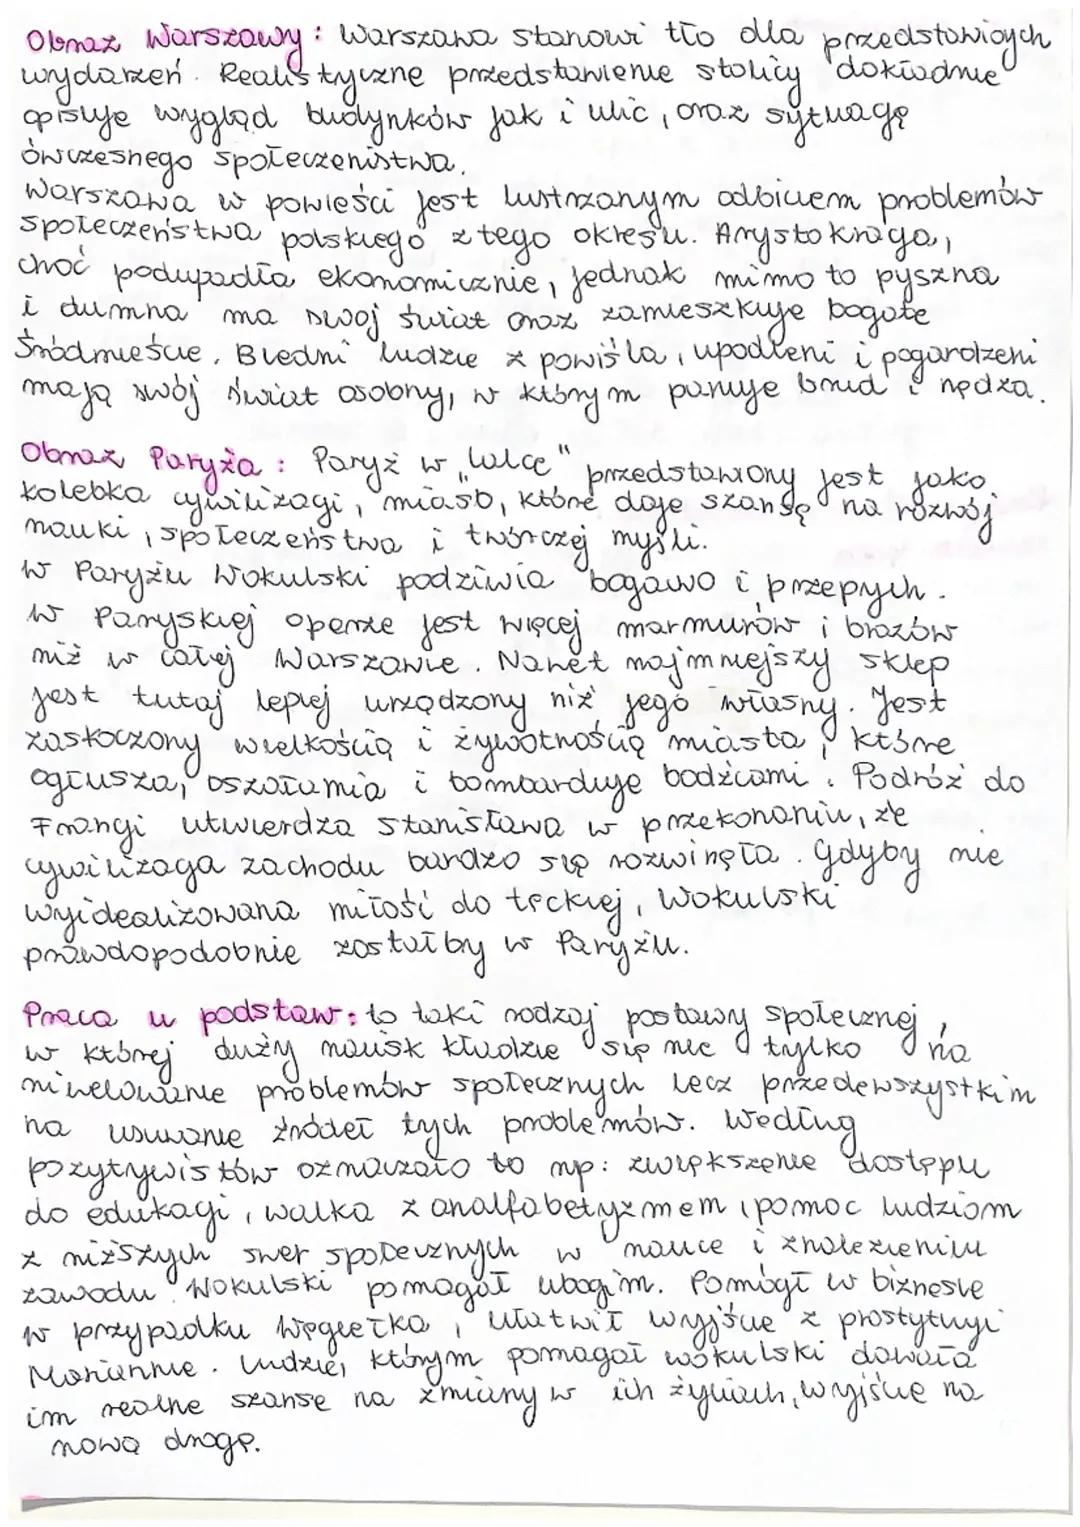 Obraz Warszawy: Warszawa stanowi tło dla przedstawioych
wydarzeń. Realistyczne przedstawienie stolicy dokładnie
opisuje wygląd budynków jak i ulic, oraz sytuację
ówczesnego społeczeństwa.
Warszawa w powieści jest lustrzanym odbiciem problemów
społeczeństwa polskiego z tego okresu. Arystokracja,
choć podupadła ekonomicznie, jednak mimo to pyszna
i dumna ma swój świat oraz zamieszkuje bogate
Śródmieście. Biedni ludzie z powiśla, upodleni i pogardzeni
mają swój świat osobny, w którym panuje brud i nędza.
Obraz Paryża: Paryż w „lalce" przedstawiony jest jako
kolebka cywilizacji, miasto, które daje szansę na rozwój
nauki, społeczeństwa i twórczej myśli.
W Paryżu Wokulski podziwia bogactwo i przepych.
W Paryskiej operze jest więcej marmurów i brązów
niż w całej Warszawie. Nawet najmniejszy sklep
jest tutaj lepiej urządzony niż jego własny. Jest
zaskoczony wielkością i żywotnością miasta, które
ogłusza, oszołamia i bombarduje bodźcami. Podróż do
Francji utwierdza Stanisława w przekonaniu, że
cywilizacja zachodu bardzo się rozwinęła. Gdyby nie
wyidealizowana miłość do Łęckiej, Wokulski
prawdopodobnie zostałby w Paryżu.
Praca u podstaw: to taki rodzaj postawy społecznej,
w której duży nacisk kładzie się nie tylko na
niwelowanie problemów społecznych lecz przedewszystkim
na usuwanie źródeł tych problemów. Według
pozytywistów oznaczało to np: zwiększenie dostępu
do edukacji, walka z analfabetyzmem, pomoc ludziom
z niższych swer społecznych w nauce i znalezieniu
zawodu. Wokulski pomagał ubogim. Pomógł w biznesie
w przypadku Węgiełka, ułatwił wyjście z prostytucji
Mariannie. Ludzie, którym pomagał wokulski dawała
im realne szanse na zmiany w ich życiach, wyjście na
nową drogę.